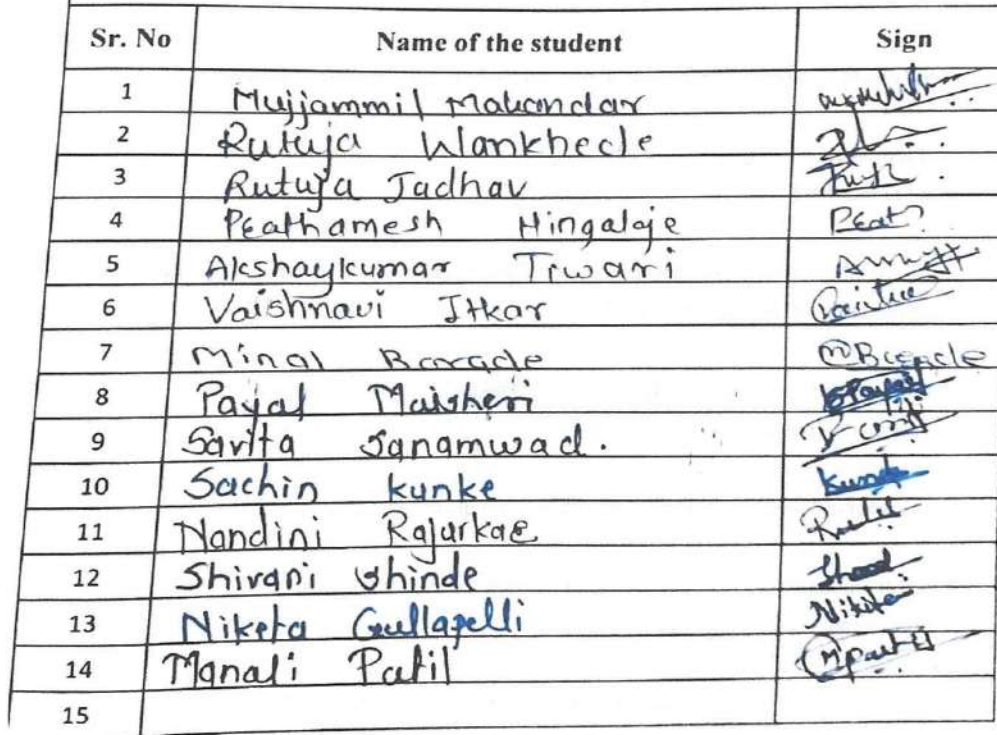 Sr. No Name of the student Sign
1 Mujjammil Makandar
2 Rutuja Wankhede
3 Rutuja Jadhav
4 Prathamesh Hingalaje Prat
5 Akshaykumar Tiwari
6 Vaishnavi Itkar
7 Minal Borade
8 Payal Maisheri
9 Savita Janamwad.
10 Sachin kunke
11 Nandini Rajurkar
12 Shivani Shinde
13 Niketa Gullapelli
14 Manali Patil
15